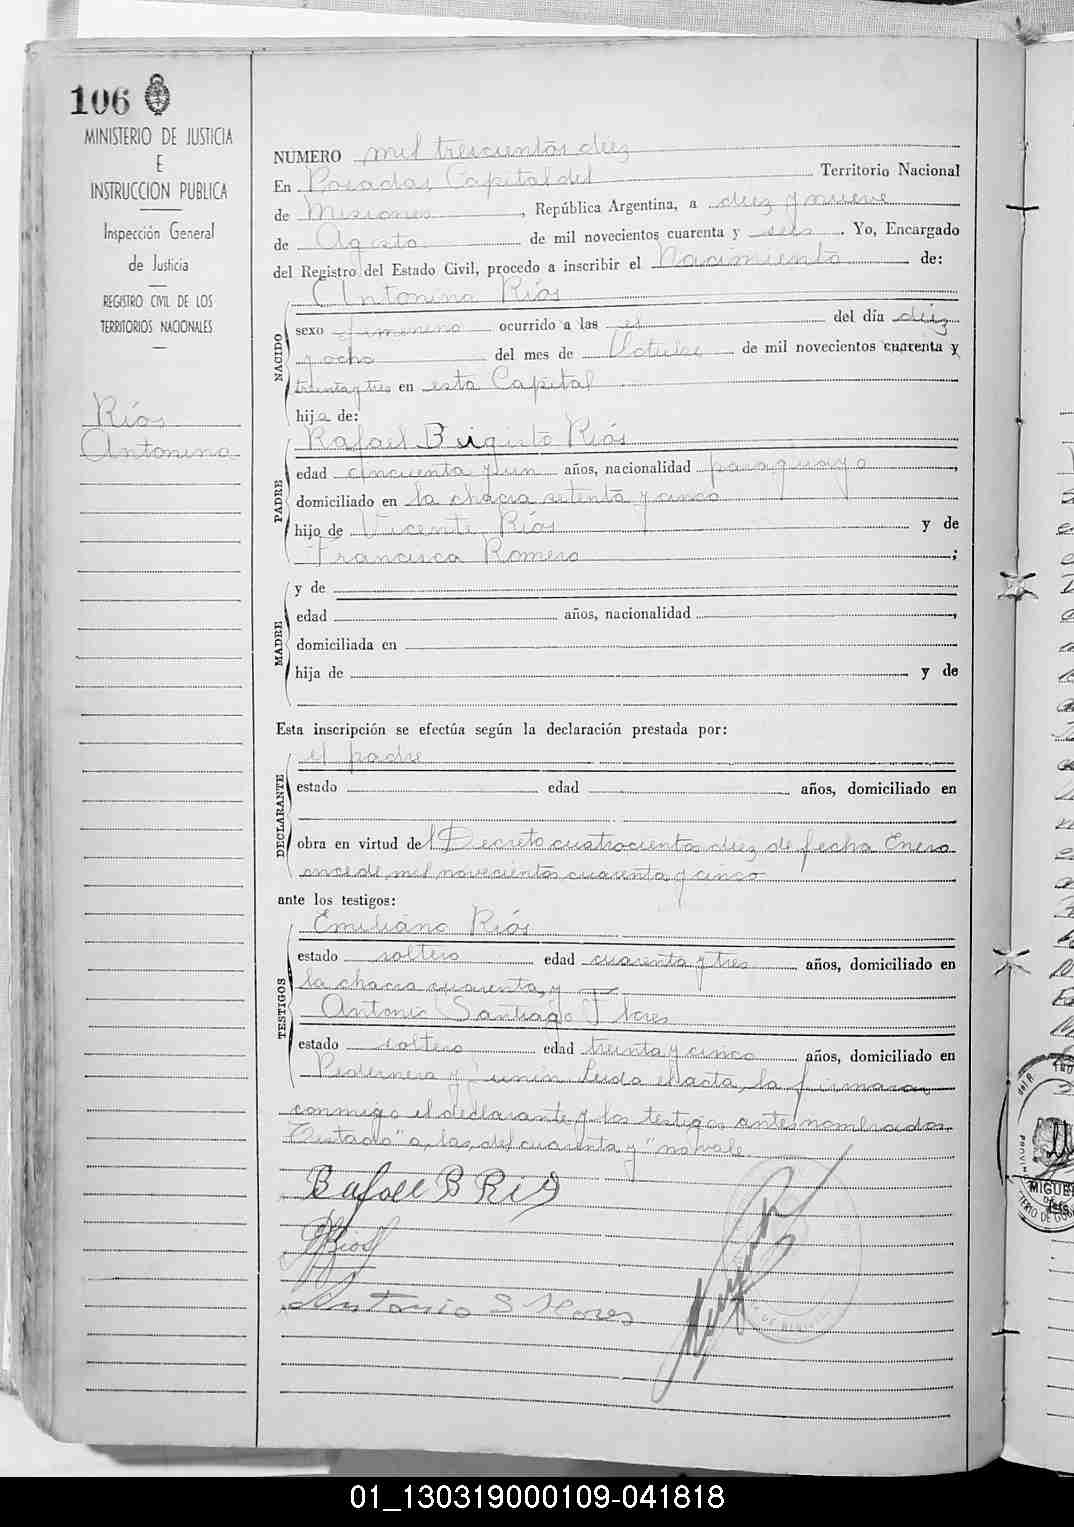 106
MINISTERIO DE JUSTICIA
E
INSTRUCCION PUBLICA
Inspección General
de Justicia
REGISTRO CIVIL DE LOS
TERRITORIOS NACIONALES
Ríos
Antonina
NUMERO mil trescientos diez
En Posadas Capital del Territorio Nacional
de Misiones, República Argentina, a diez y nueve
de Agosto de mil novecientos cuarenta y seis. Yo, Encargado
del Registro del Estado Civil, procedo a inscribir el Nacimiento de:
NACIDO
Antonina Ríos
sexo femenino ocurrido a las del día diez
y ocho del mes de Octubre de mil novecientos cuarenta y
treinta y tres en esta Capital
hija de:
PADRE
Rafael Brigido Ríos
edad cincuenta y un años, nacionalidad paraguayo,
domiciliado en la chacra setenta y cinco
hijo de Vicente Ríos y de
Francisca Romero;
MADRE
y de
edad años, nacionalidad ,
domiciliada en
hija de y de
Esta inscripción se efectúa según la declaración prestada por:
DECLARANTE
el padre
estado edad años, domiciliado en
obra en virtud del Decreto cuatrocientos diez de fecha Enero
once de mil novecientos cuarenta y cinco
ante los testigos:
TESTIGOS
Emiliano Ríos
estado soltero edad cuarenta y tres años, domiciliado en
la chacra cuarenta, y
Antonio Santiago Flores
estado soltero edad treinta y cinco años, domiciliado en
Pedernera y Junín. Leida el acta, la firmaron
conmigo el declarante y los testigos antes nombrados.
Testado "a, las, del cuarenta y" no vale.
Rafael B Rios
Rios
Antonio S Flores
MIGUE
01_130319000109-041818